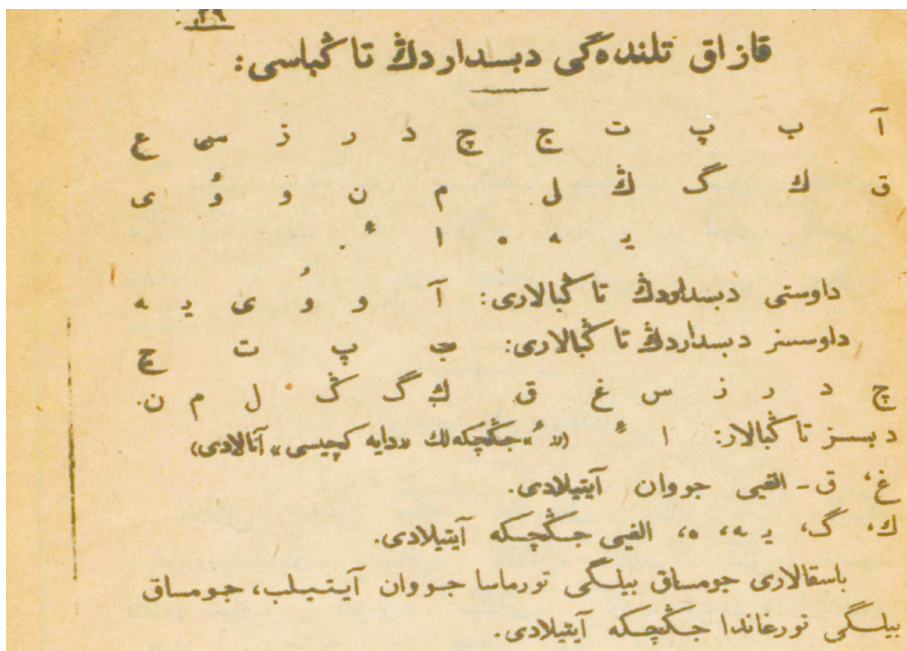 ٢٩
قازاق تلندەگی دبسداردڭ تاڭباسی:
آ ب پ ت ج چ د ر ز س ع
ق ك گ ڭ ل م ن و ۇ ی
ي ﻪ ە ا ء.
داوستی دبسداردڭ تاڭبالاری: آ و ۇ ی ي ﻪ
داوسسز دبسداردڭ تاڭبالاری: ب پ ت ج
چ د ر ز س غ ق ك گ ڭ ل م ن.
دبسسز تاڭبالار: ا ء («ء» جڭچكەلك «دایە كچیسی» آتالادی)
غ، ق ـ القیی جووان آیتیلادی.
ك، گ، ي ﻪ، ە، القیی جڭچكە آیتیلادی.
باسقالاری جومساق بیلگی تورماسا جووان آیتیلب، جومساق
بیلگی تورعاندا جڭچكە آیتیلادی.